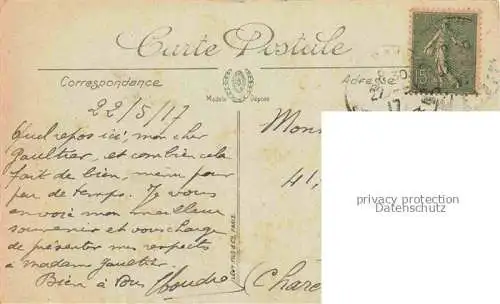 Carte Postale
Correspondance
Adresse
Modèle Déposé
15
22/5/17
Quel repos ici, mon cher
Gaultier, et combien cela
fait de bien, même pour
peu de temps. Je vous
envoie mon meilleur
souvenir et vous charge
de présenter mes respects
à madame Gaultier.
Bien à vous
Mons
41,
(Chare
17
privacy protection
Datenschutz